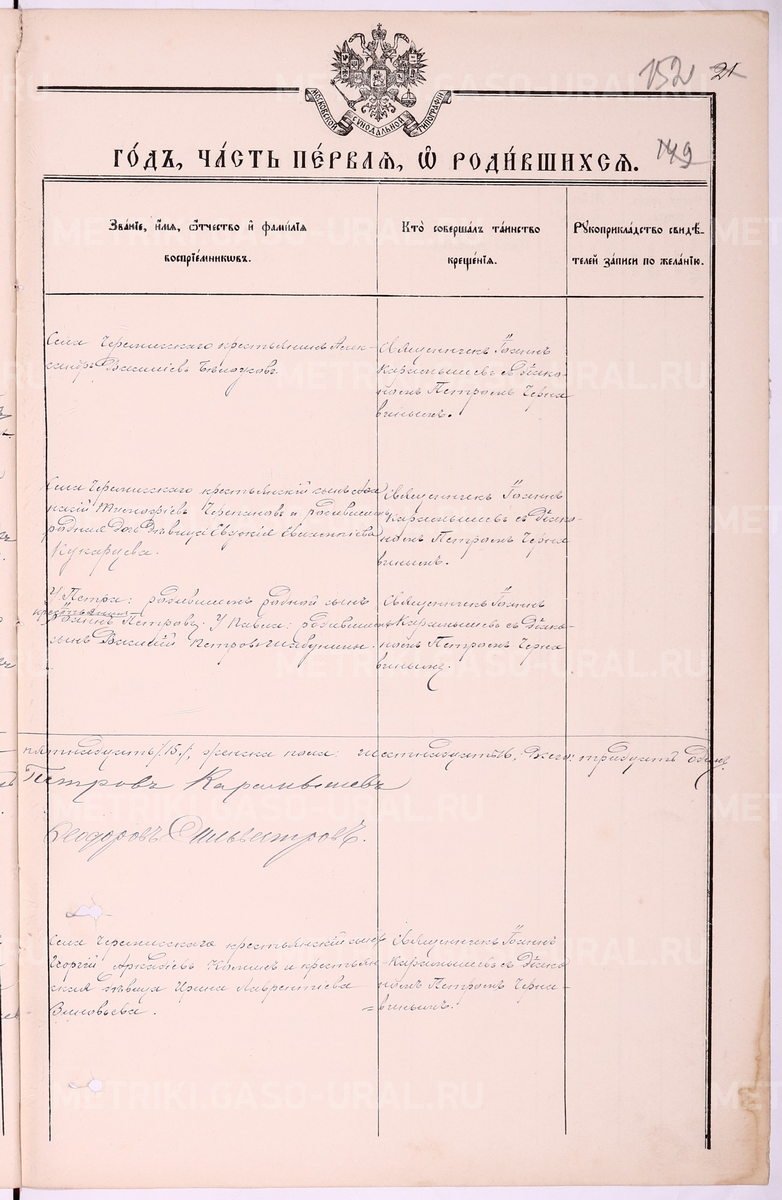 152 21
МОСКОВСКОЙ СѴНОДАЛЬНОЙ ТИПОГРАФІИ
149
ГО́ДЪ, ЧА́СТЬ ПЕ́РВАѦ, Ѡ҆ РОДИ́ВШИХСѦ.
Зва́нїе, и҆́мѧ, ѻ҆́тчество и҆ фами́лїѧ
воспрїе́мникѡвъ.
Кто̀ соверша́лъ та́инство
креще́нїѧ.
Рꙋкоприкла́дство свидѣ́-
телей за́писи по жела́нїю.
Села Черемисскаго крестьянинъ Алек-
сандръ Василіевъ
Священникъ Іоаннъ
Карамышевъ съ Діако-
номъ Петромъ Черна
винымъ.
Села Черемисскаго крестьянскій сынъ
Тимофіевъ Черепановъ и
родная дочь дѣвица Евдокія
Кукарцева.
Священникъ Іоаннъ
Карамышевъ съ Діако-
номъ Петромъ Черна
винымъ.
У Петра: родившихъ родной сынъ
крестьянинъ
Іоаннъ Петровъ. У Павла: родившихъ
сынъ Василій Петровъ
Священникъ Іоаннъ
Карамышевъ съ Діако-
номъ Петромъ Черна
винымъ.
пятнадцать /15/, женска пола: шестнадцать /16/, Всего: тридцать одинъ.
Петровъ Карамышевъ
Ѳеодоровъ Сильвестровъ.
Села Черемисскаго крестьянскій сынъ
Георгій Аркадіевъ и крестьян
ская дѣвица Ирина Лаврентіева
Зиновьева.
Священникъ Іоаннъ
Карамышевъ съ Діако
номъ Петромъ Черна-
винымъ.
METRIKI.GASO-URAL.RU